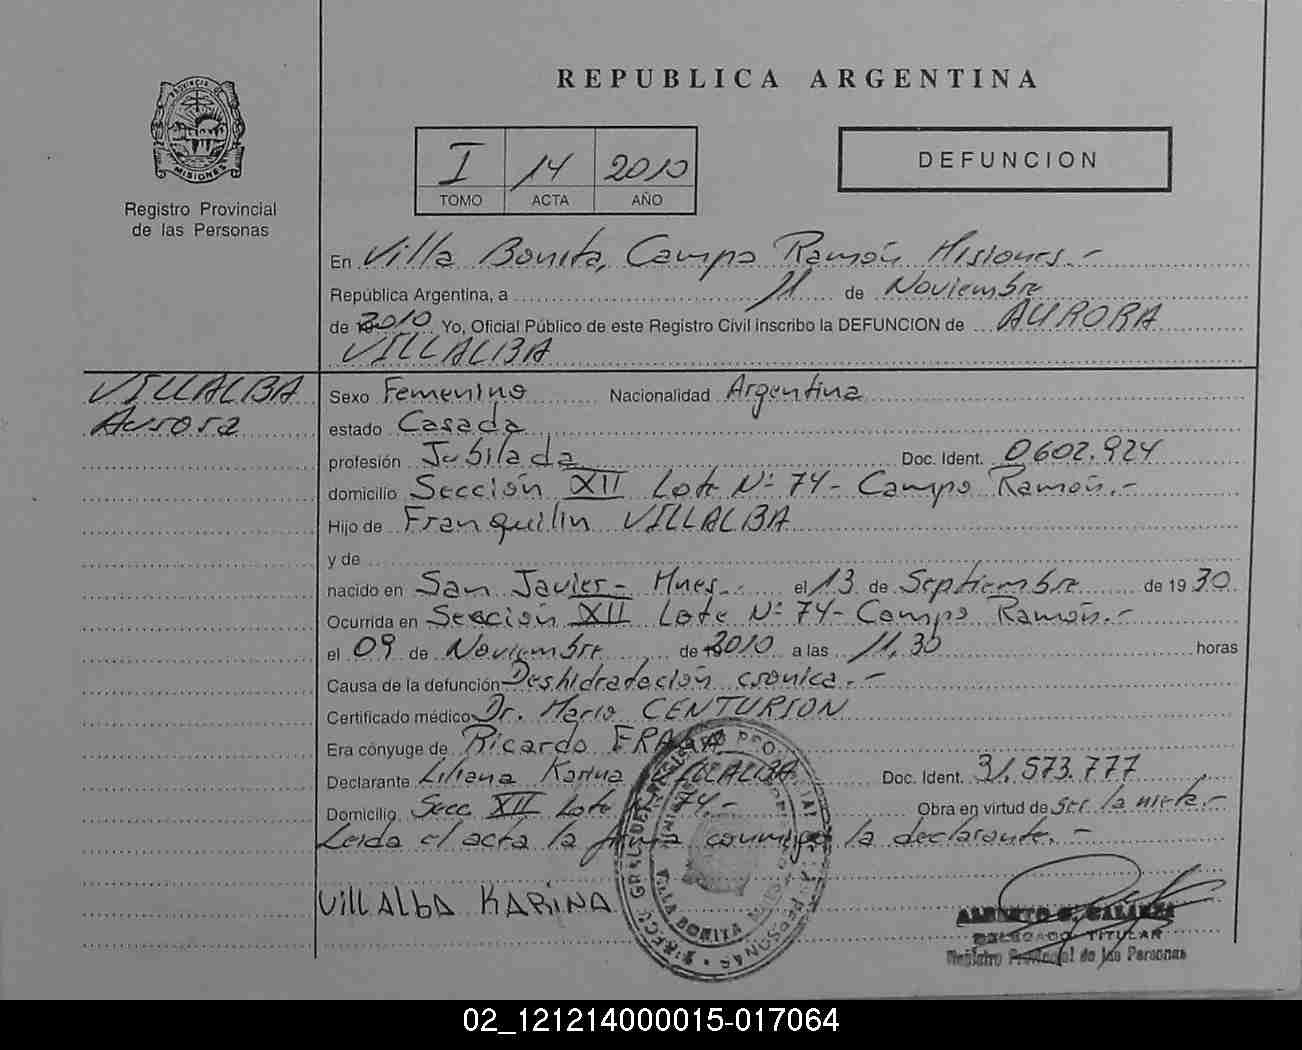 PROVINCIA DE
MISIONES
Registro Provincial
de las Personas
REPUBLICA ARGENTINA
I 14 2010
TOMO ACTA AÑO
DEFUNCION
En Villa Bonita, Campo Ramón Misiones.-
República Argentina, a 11 de Noviembre
de 2010 Yo, Oficial Público de este Registro Civil inscribo la DEFUNCION de AURORA
VILLALBA
VILLALBA
Aurora
Sexo Femenino Nacionalidad Argentina
estado Casada
profesión Jubilada Doc. Ident. 0602.924
domicilio Sección XII Lote Nº 74- Campo Ramón.-
Hijo de Franquilin VILLALBA
y de
nacido en San Javier- Mnes.- el 13 de Septiembre de 1930
Ocurrida en Sección XII Lote Nº 74- Campo Ramón.-
el 09 de Noviembre de 2010 a las 11,30 horas
Causa de la defunción Deshidratación cronica.-
Certificado médico Dr. Mario CENTURION
Era cónyuge de Ricardo
Declarante Liliana Karina VILLALBA Doc. Ident. 31.573.777
Domicilio Secc XII Lote Nº 74.- Obra en virtud de ser la nieta.-
Leida el acta la firma conmigo la declarante.-
VillAlbA KARiNA
VILLA BONITA
ALBERTO
DELEGADO TITULAR
Registro Provincial de las Personas
02_121214000015-017064